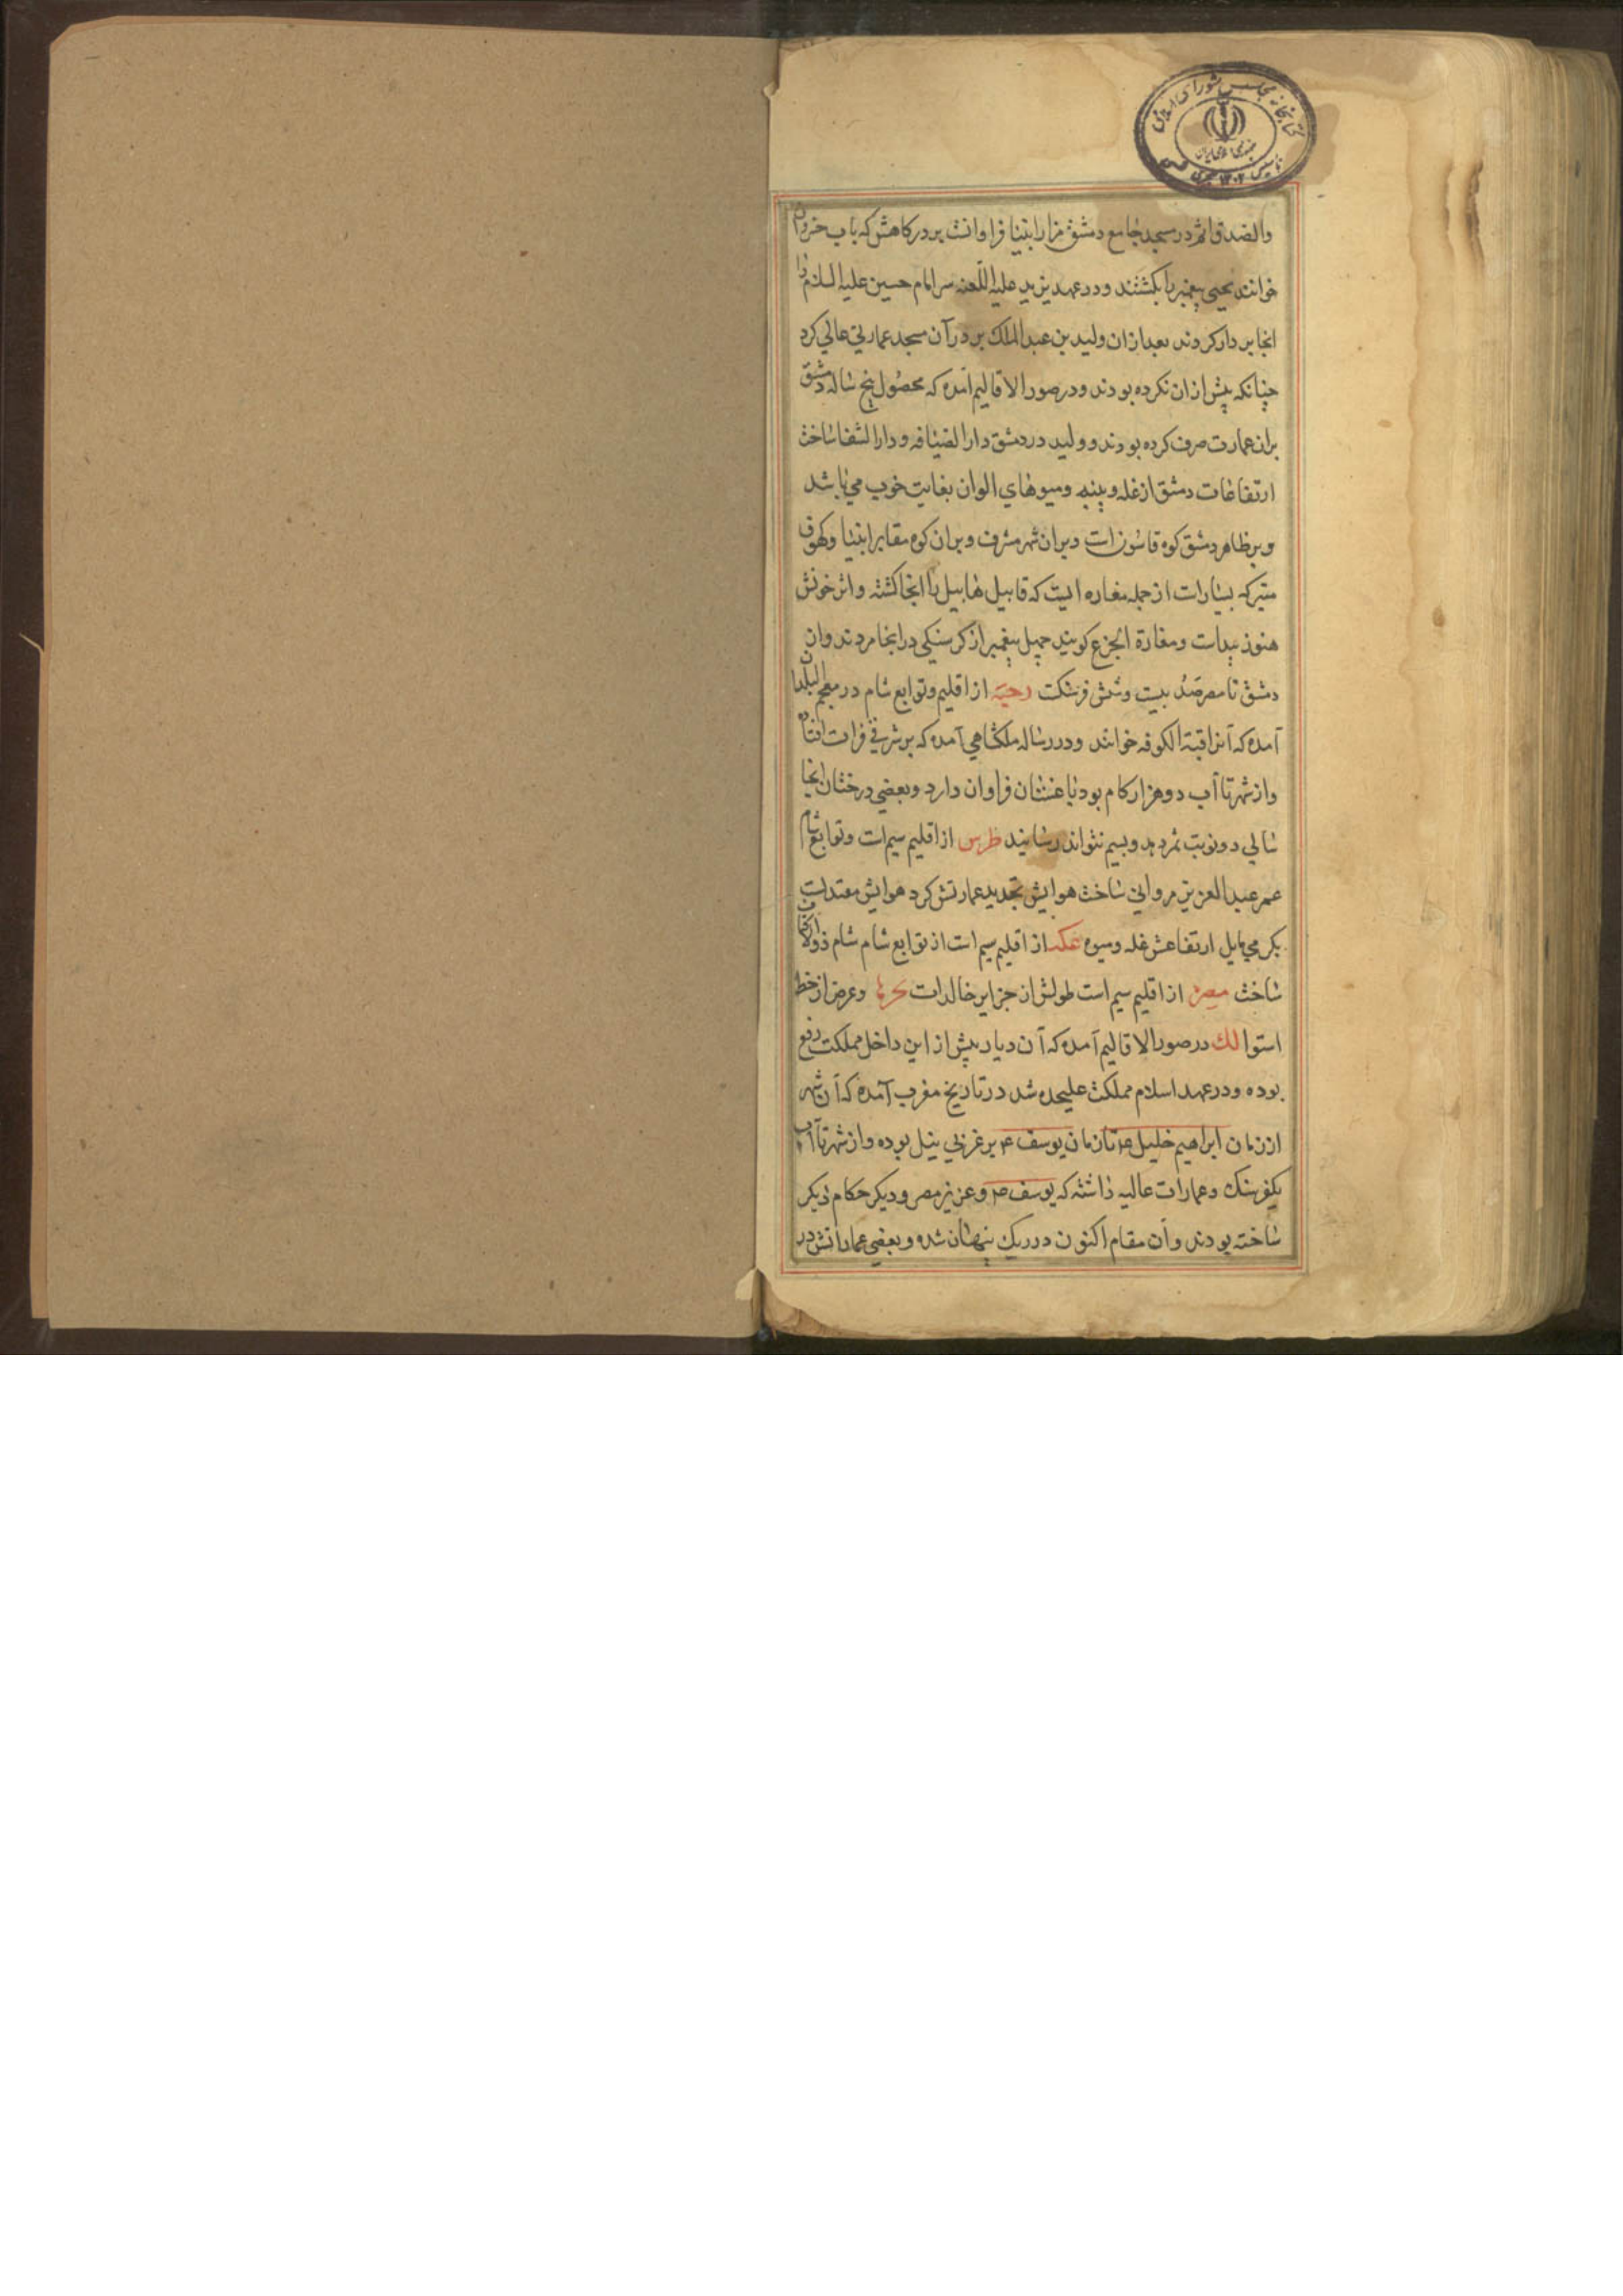 کتابخانه مجلس شورای اسلامی
جمهوری اسلامی ایران
تاسیس ۱۳۰۲ هجری
در مسجد جامع دمشق مزار انبیا فراوانست بر درکاهش که باب جیرون
خوانند یحیی پیغمبر را بکشتند و در عهد یزید علیه اللعنه سر امام حسین علیه السلام را
انجا بر دار کردند بعد ازان ولید بن عبدالملک بر در آن مسجد عمارتی عالی کرد
چنانکه پیش از ان نکرده بودند و در صور الاقالیم آمده که محصول پنج ساله دمشق
بران عمارت صرف کرده بودند و ولید در دمشق دار الضیافه و دار الشفا ساخت
ارتفاعات دمشق از غله و پنبه و میوهای الوان بغایت خوب می باشد
و بر ظاهر دمشق کوه قاسون است و بران شهر مشرف و بران کوه مقابر انبیا و کهوف
متبرکه بسیار است از جمله مغاره ایست که قابیل هابیل را انجا کشته و اثر خونش
هنوز پیداست و مغارة الجزع کویند چهل پیغمبر از کرسنکی در انجا مردند و ان
دمشق تا مصر صد بیست و شش فرسنکت رحبه از اقلیم و توابع شام در معجم البلدان
آمده که آنرا قبة الکوفه خوانند و در رساله ملکشاهی آمده که بر شرقی فرات افتاده
و از شهر تا آب دو هزار کام بود باغستان فراوان دارد و بعضی درختان انجا
سالی دو نوبت ثمر دهد و بسیم نتواند رسانید طرس از اقلیم سیم است و توابع شام
عمر عبدالعزیز مروانی ساخت هوایش تجدید عمارتش کرد هوایش معتدلست
بکرمی مایل ارتفاعش غله و میوه عکه از اقلیم سیم است از توابع شام شام ذو الاکتاف
ساخت مصر از اقلیم سیم است طولش از جزایر خالدات و عرض از خط
استوا لك در صور الاقالیم آمده که آن دیار پیش از این داخل مملکت
بوده و در عهد اسلام مملکت علیحده شد در تاریخ مغرب آمده که آن شهر
از زمان ابراهیم خلیل ع تا زمان یوسف ع بر غربی نیل بوده و از شهر تا آب
یکفرسنك و عمارات عالیه داشته که یوسف ع و عزیز مصر و دیکر حکام دیکر
ساخته بودند و آن مقام اکنون در ریك پنهان شده و بعضی عماراتش در